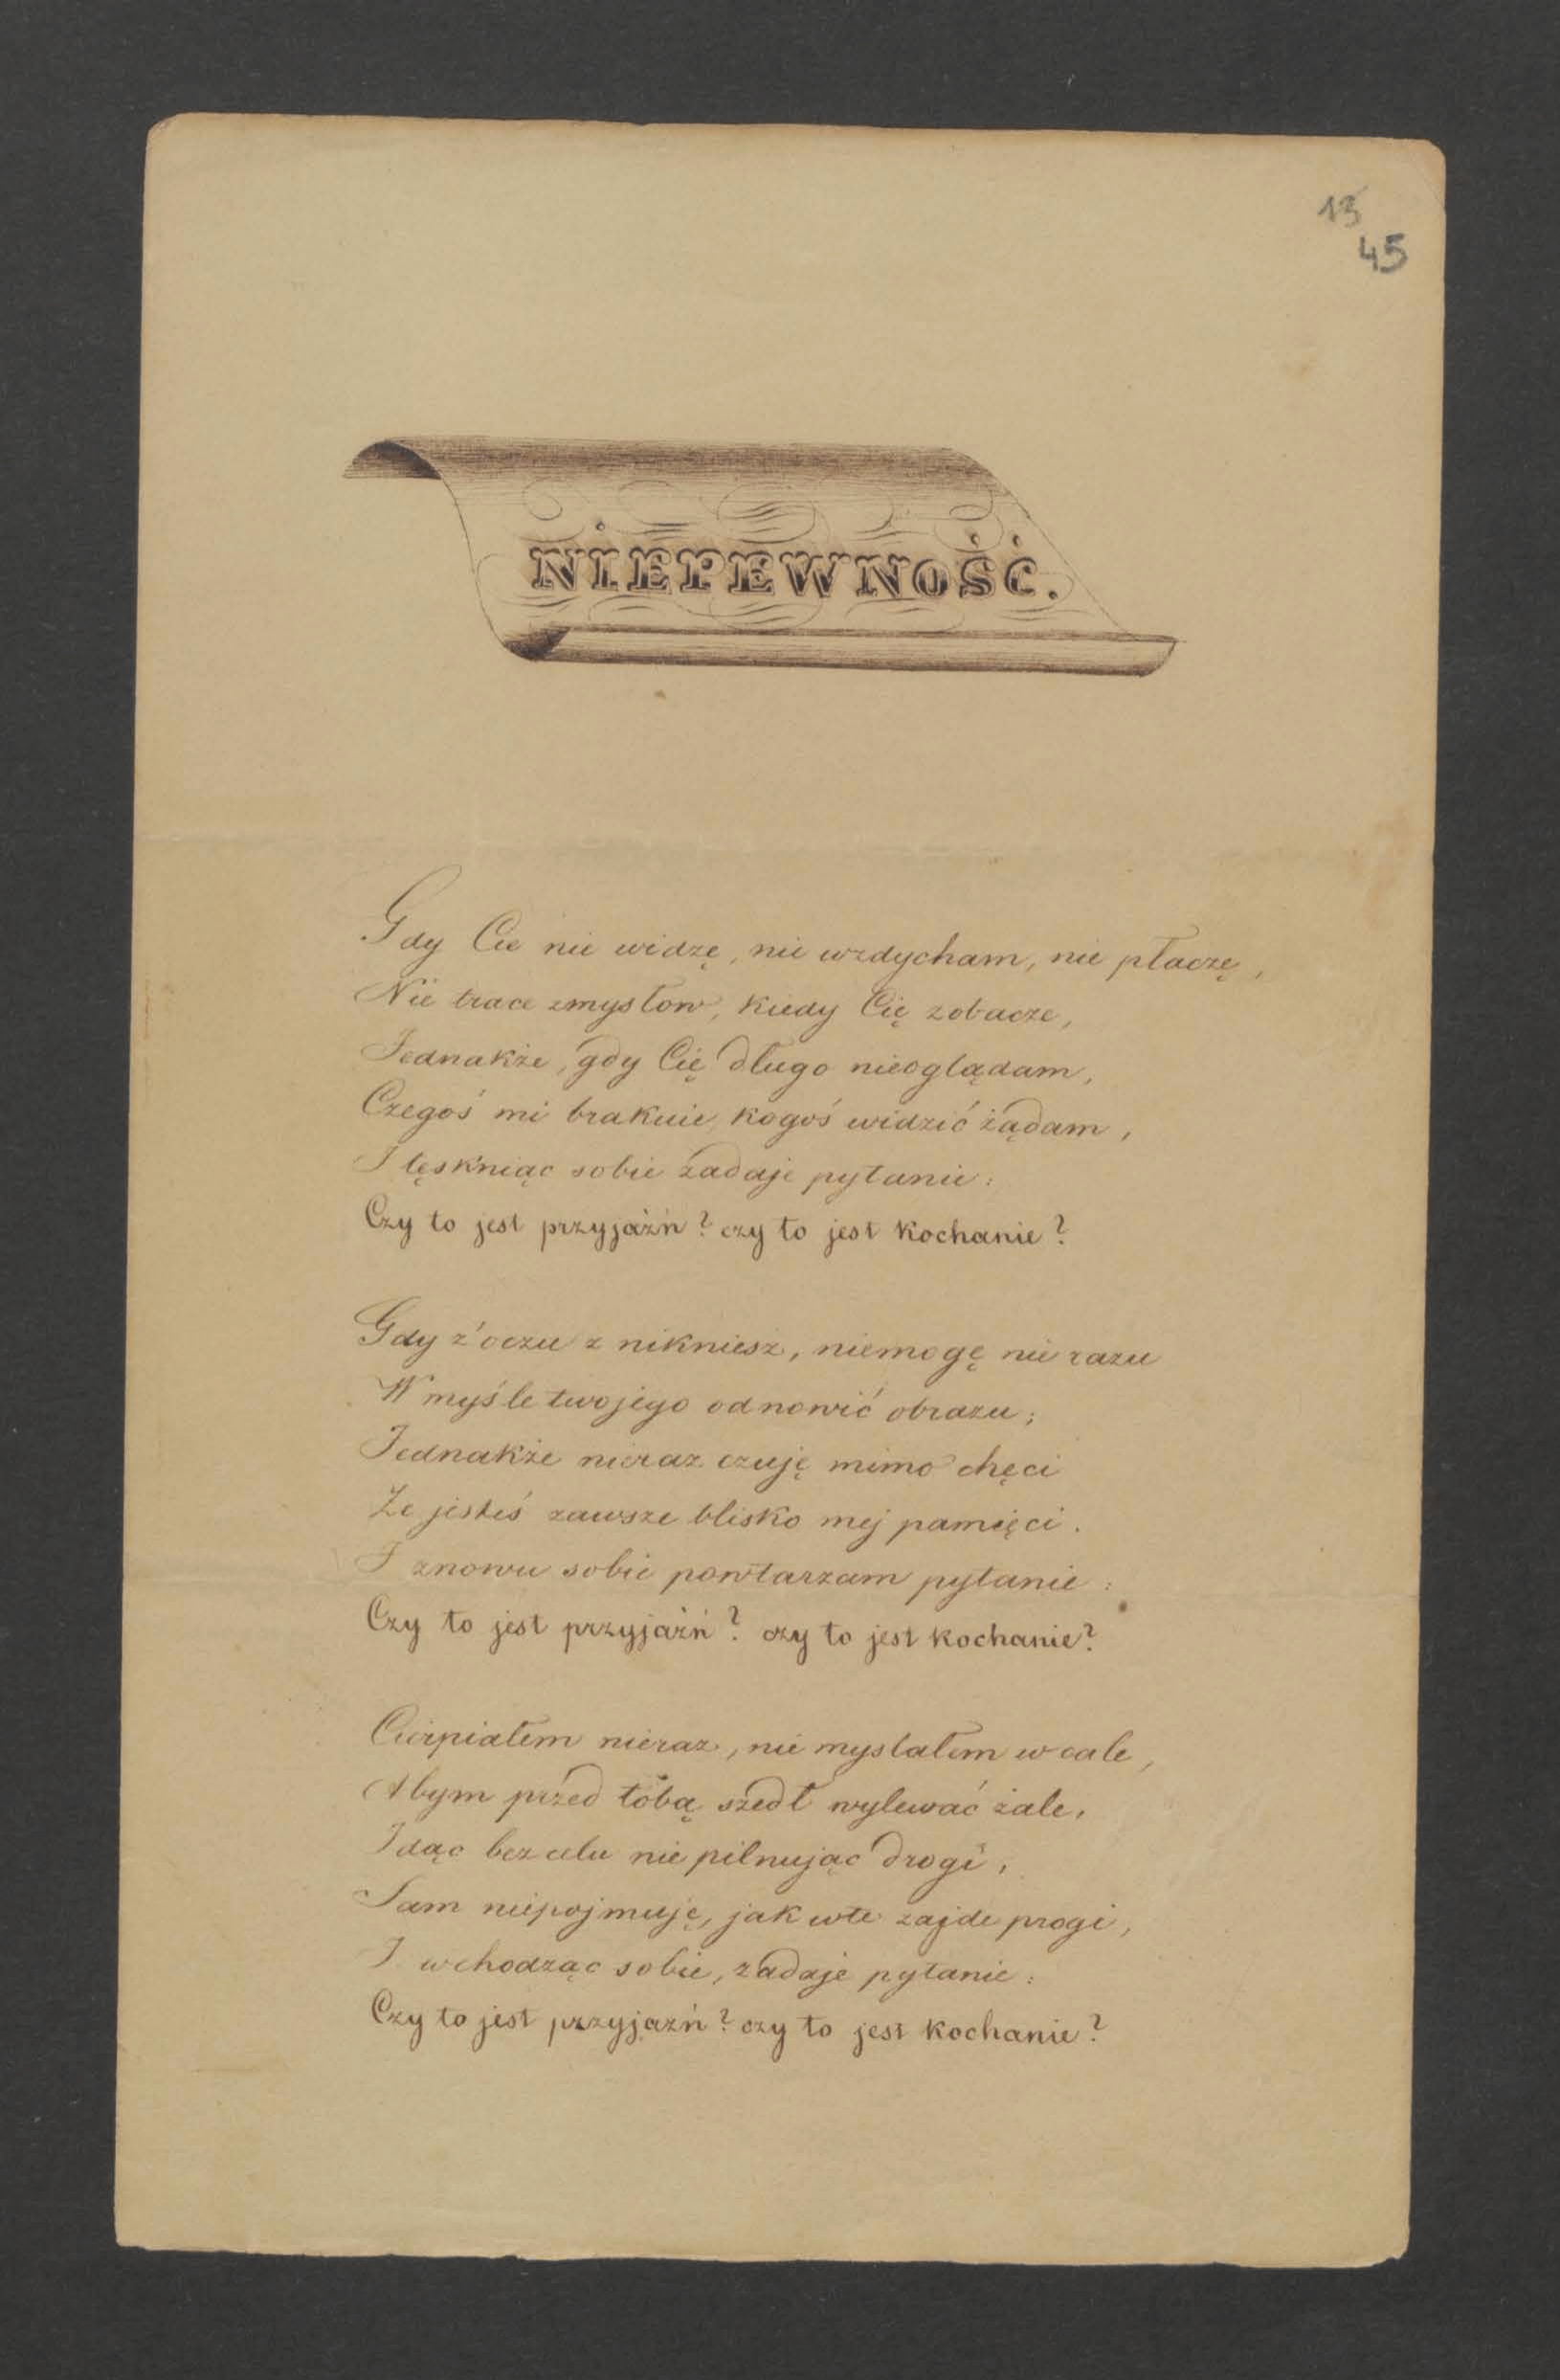 13
45
NIEPEWNOŚĆ.
Gdy Cie nie widzę, nie wzdycham, nie płaczę,
Nie trace zmysłow, kiedy Cię zobacze,
Jednakże, gdy Cię długo nieoglądam,
Czegoś mi brakuie, kogoś widzić żądam,
I tęskniąc sobie zadaje pytanie:
Czy to jest przyjaźń? czy to jest kochanie?
Gdy z oczu z nikniesz, niemogę nie razu
W myśle twojego odnowić obrazu;
Jednakże nieraz czuję mimo chęci
Że jesteś zawsze blisko mej pamięci.
I znowu sobie powtarzam pytanie:
Czy to jest przyjaźń? czy to jest kochanie?
Cierpiałem nieraz, nie myslałem w cale,
Abym przed tobą szedł wylewać żale,
Idąc bez celu nie pilnując drogi,
Sam niepojmuję, jak wte zajde progi,
I wchodząc sobie, zadaje pytanie:
Czy to jest przyjaźń? czy to jest kochanie?